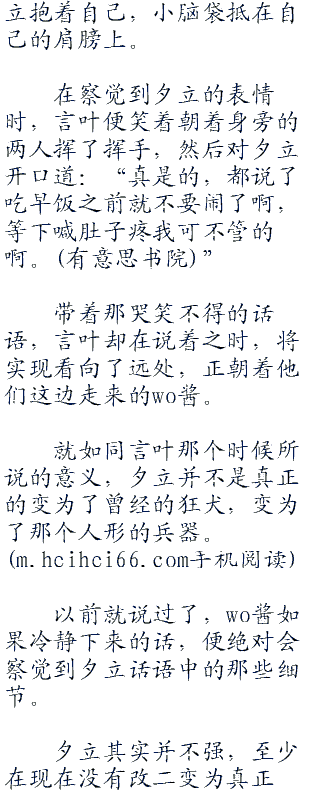 立抱着自己，小脑袋抵在自
己的肩膀上。
在察觉到夕立的表情
时，言叶便笑着朝着身旁的
两人挥了挥手，然后对夕立
开口道：“真是的，都说了
吃早饭之前就不要闹了啊，
等下喊肚子疼我可不管的
啊。(有意思书院)”
带着那哭笑不得的话
语，言叶却在说着之时，将
实现看向了远处，正朝着他
们这边走来的wo酱。
就如同言叶那个时候所
说的意义，夕立并不是真正
的变为了曾经的狂犬，变为
了那个人形的兵器。
(m.hcihci66.com手机阅读)
以前就说过了，wo酱如
果冷静下来的话，便绝对会
察觉到夕立话语中的那些细
节。
夕立其实并不强，至少
在现在没有改二变为真正